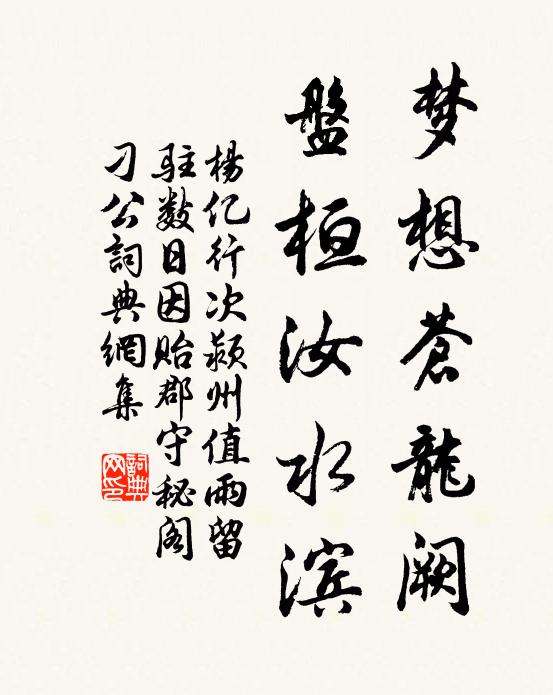 梦想苍龍阙
盤桓汝水滨
楊亿行次颍州值雨留
驻数日因贻郡守秘阁
刁公詞典網集
詞典网印